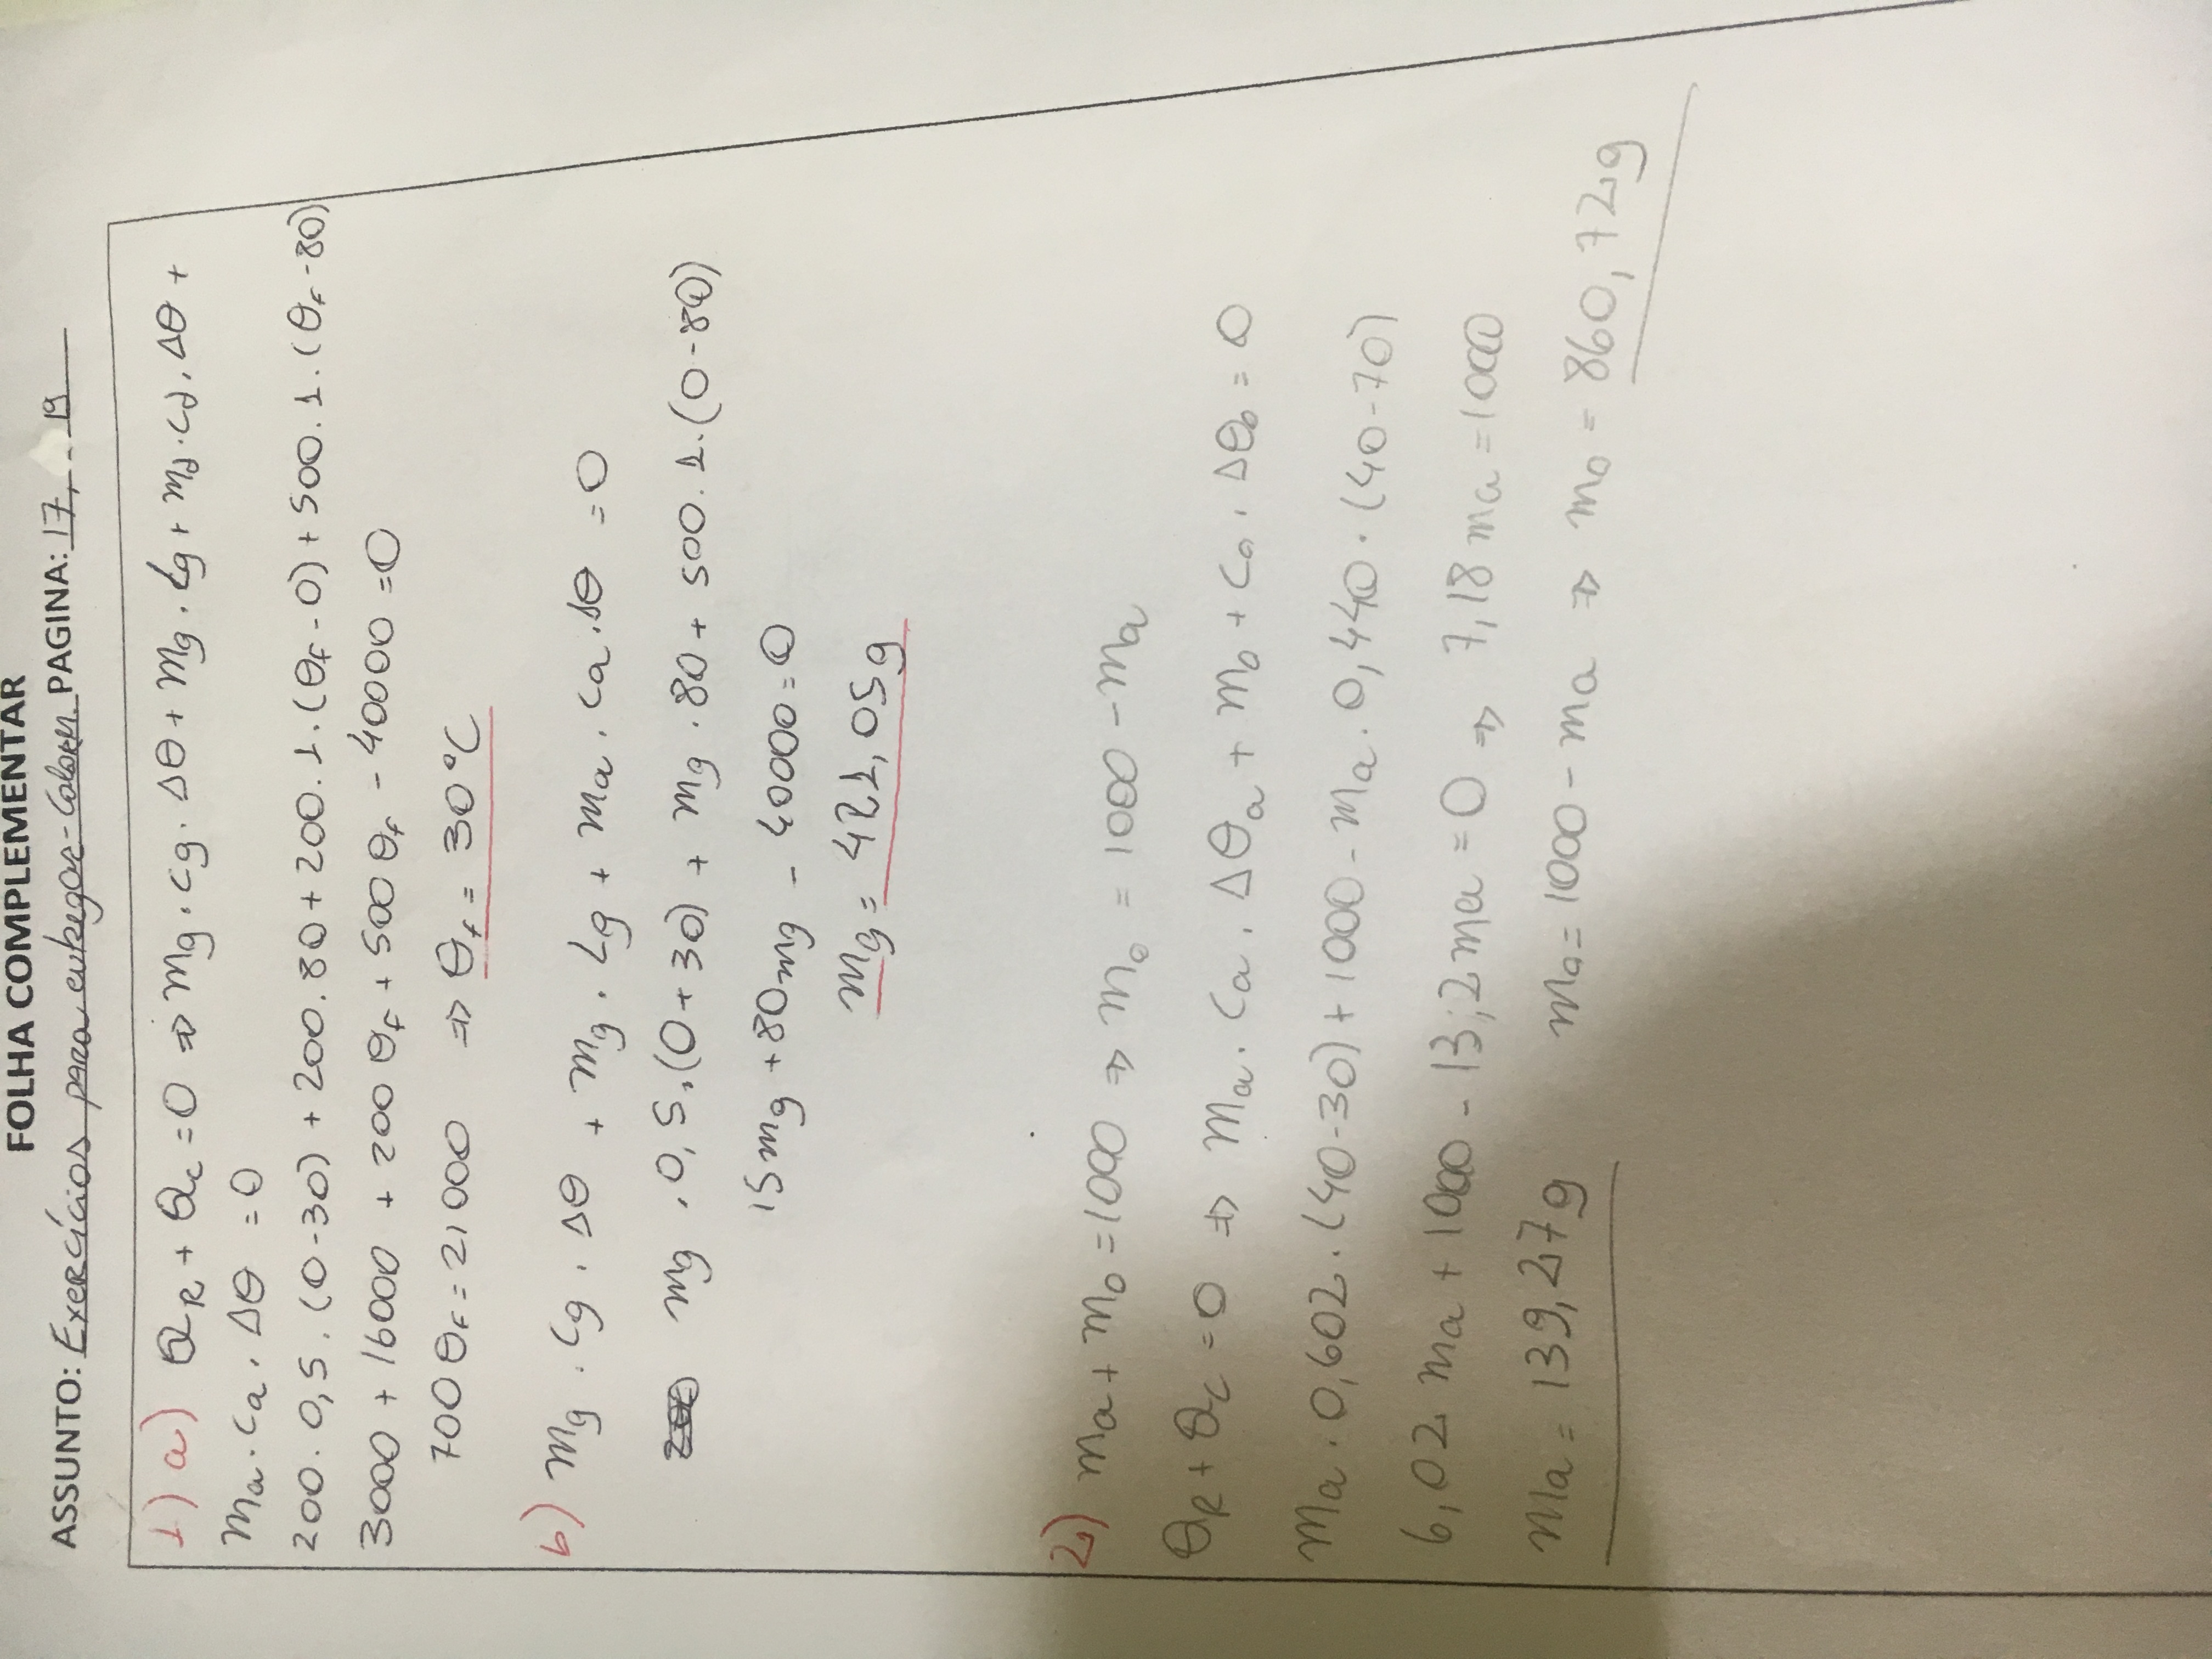 FOLHA COMPLEMENTAR
ASSUNTO: Exercícios para entregar - Calorim. PAGINA: 17, - 19
1) a) QR + Qc = 0 ⇒ mg . cg . Δθ + mg . Lg + ma . ca . Δθ +
ma . ca . Δθ = 0
200 . 0,5 . (0-30) + 200 . 80 + 200 . 1 . (θf - 0) + 500 . 1 . (θf - 80)
3000 + 16000 + 200 θf + 500 θf - 40000 = 0
700 θf = 21000 ⇒ θf = 30°C
b) mg . cg . Δθ + mg . Lg + ma . ca . Δθ = 0
mg . 0,5 . (0+30) + mg . 80 + 500 . 1 . (0-80)
15mg + 80mg - 40000 = 0
mg = 421,05g
2) ma + mo = 1000 ⇒ mo = 1000 - ma
QR + Qc = 0 ⇒ ma . ca . Δθa + mo + co . Δθo = 0
ma . 0,602 . (40-30) + 1000 - ma . 0,440 . (40-70)
6,02 ma + 1000 - 13,2 ma = 0 ⇒ 7,18 ma = 1000
ma = 139,27g ma = 1000 - ma ⇒ mo = 860,72g